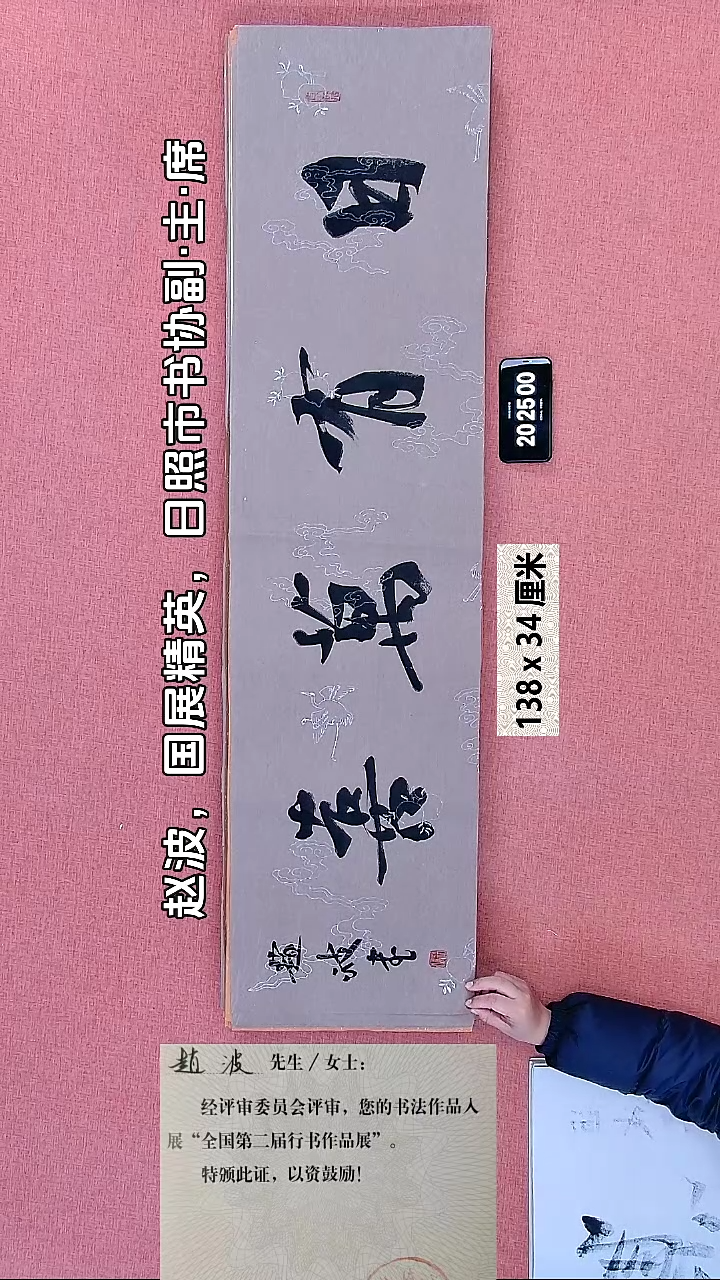 赵波，国展精英，日照市书协副·主·席
日有萬喜
趙波書
202500
138 x 34 厘米
趙波 先生/女士：
经评审委员会评审，您的书法作品入
展“全国第二届行书作品展”。
特颁此证，以资鼓励！